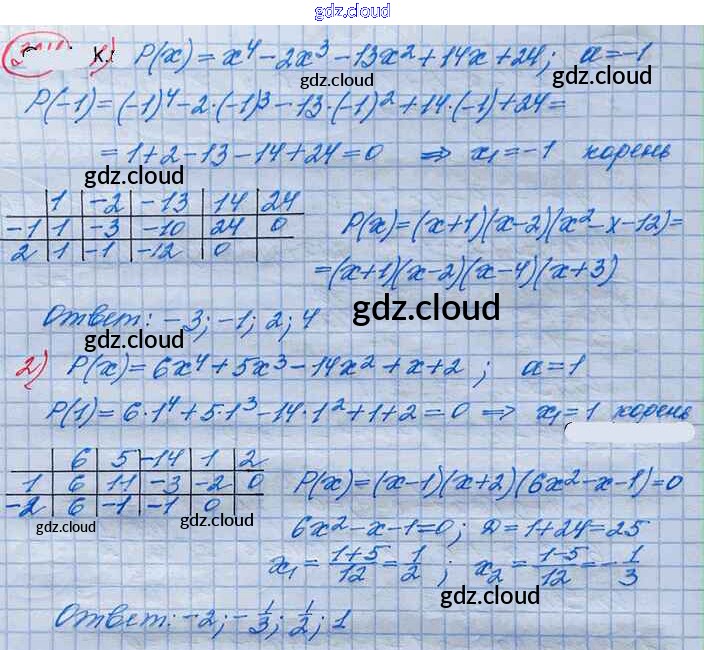 gdz.cloud
к. 1) P(x) = x⁴ - 2x³ - 13x² + 14x + 24; a = -1
gdz.cloud gdz.cloud
P(-1) = (-1)⁴ - 2·(-1)³ - 13·(-1)² + 14·(-1) + 24 =
= 1 + 2 - 13 - 14 + 24 = 0 ⇒ x₁ = -1 корень
gdz.cloud
1 | -2 | -13 | 14 | 24
-1 | 1 | -3 | -10 | 24 | 0
2 | 1 | -1 | -12 | 0
P(x) = (x+1)(x-2)(x²-x-12) =
= (x+1)(x-2)(x-4)(x+3)
gdz.cloud gdz.cloud
Ответ: -3; -1; 2; 4
gdz.cloud gdz.cloud
2) P(x) = 6x⁴ + 5x³ - 14x² + x + 2; a = 1
P(1) = 6·1⁴ + 5·1³ - 14·1² + 1 + 2 = 0 ⇒ x₁ = 1 корень
6 | 5 | -14 | 1 | 2
1 | 6 | 11 | -3 | -2 | 0
-2 | 6 | -1 | -1 | 0
gdz.cloud gdz.cloud
P(x) = (x-1)(x+2)(6x²-x-1) = 0
gdz.cloud
6x² - x - 1 = 0; D = 1 + 24 = 25
x₁ = (1+5)/12 = 1/2; x₂ = (1-5)/12 = -1/3
gdz.cloud
Ответ: -2; -1/3; 1/2; 1
gdz.cloud gdz.cloud